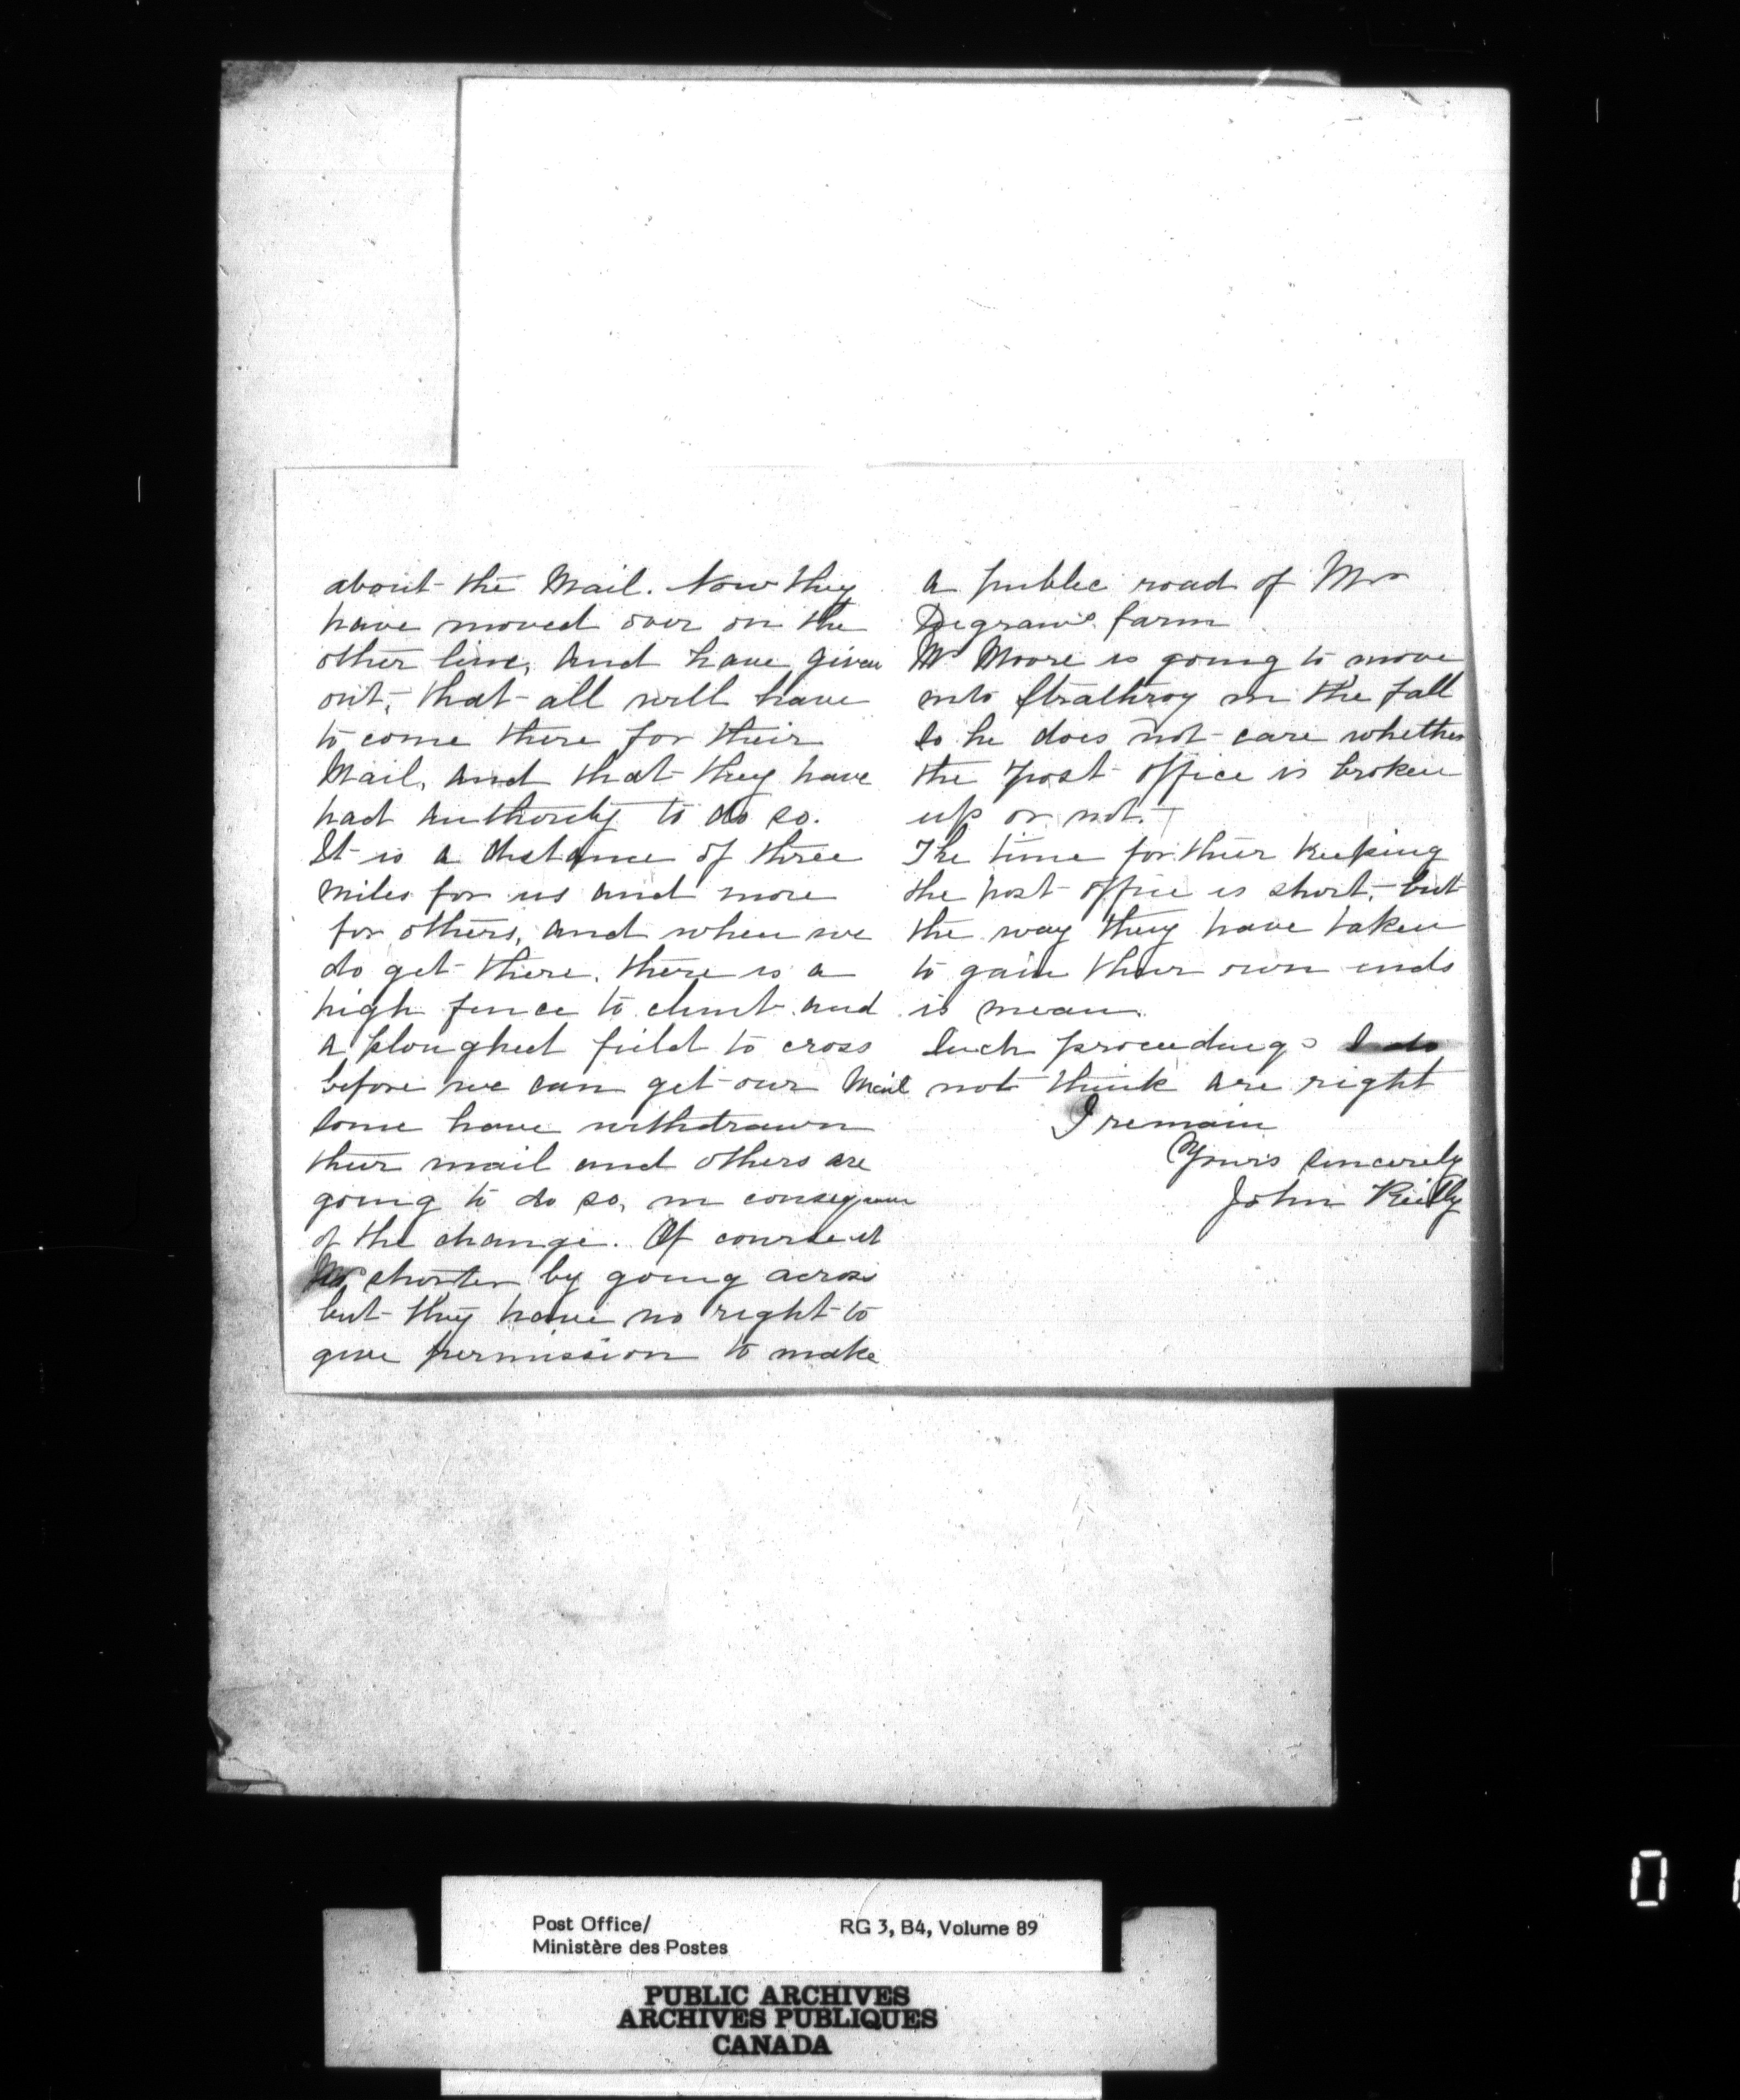 about the Mail. Now they
have moved over on the
other line, and have given
out, that all will have
to come there for their
Mail, and that they have
had authority to do so.
It is a distance of three
miles for us and more
for others, and when we
do get there, there is a
high fence to climb and
a ploughed field to cross
before we can get our Mail
some have withdrawn
their mail and others are
going to do so, in consequence
of the change. Of course it
is shorter by going across
but they have no right to
give permission to make
a public road of Mrs
Degraw's farm
Mr Moore is going to move
into Strathroy in the fall
so he does not care whether
the Post office is broken
up or not.
The time for their keeping
the post office is short, but
the way they have taken
to gain their own ends
is mean.
Such proceedings I do
not think are right
I remain
Yours sincerely
John Reilly
0
Post Office/
Ministère des Postes
RG 3, B4, Volume 89
PUBLIC ARCHIVES
ARCHIVES PUBLIQUES
CANADA